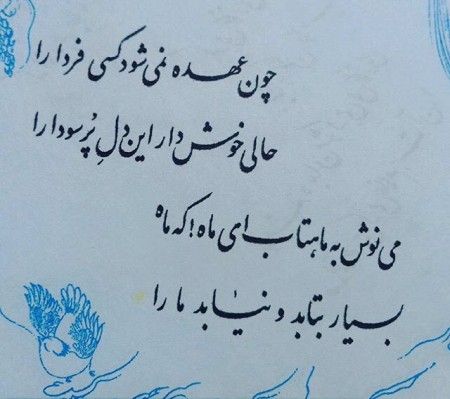 چون عهده نمی‌شود کسی فردا را
حالی خوش دار این دلِ پُر سودا را
می نوش به ماهتاب ای ماه! که ماه
بسیار بتابد و نیابد ما را